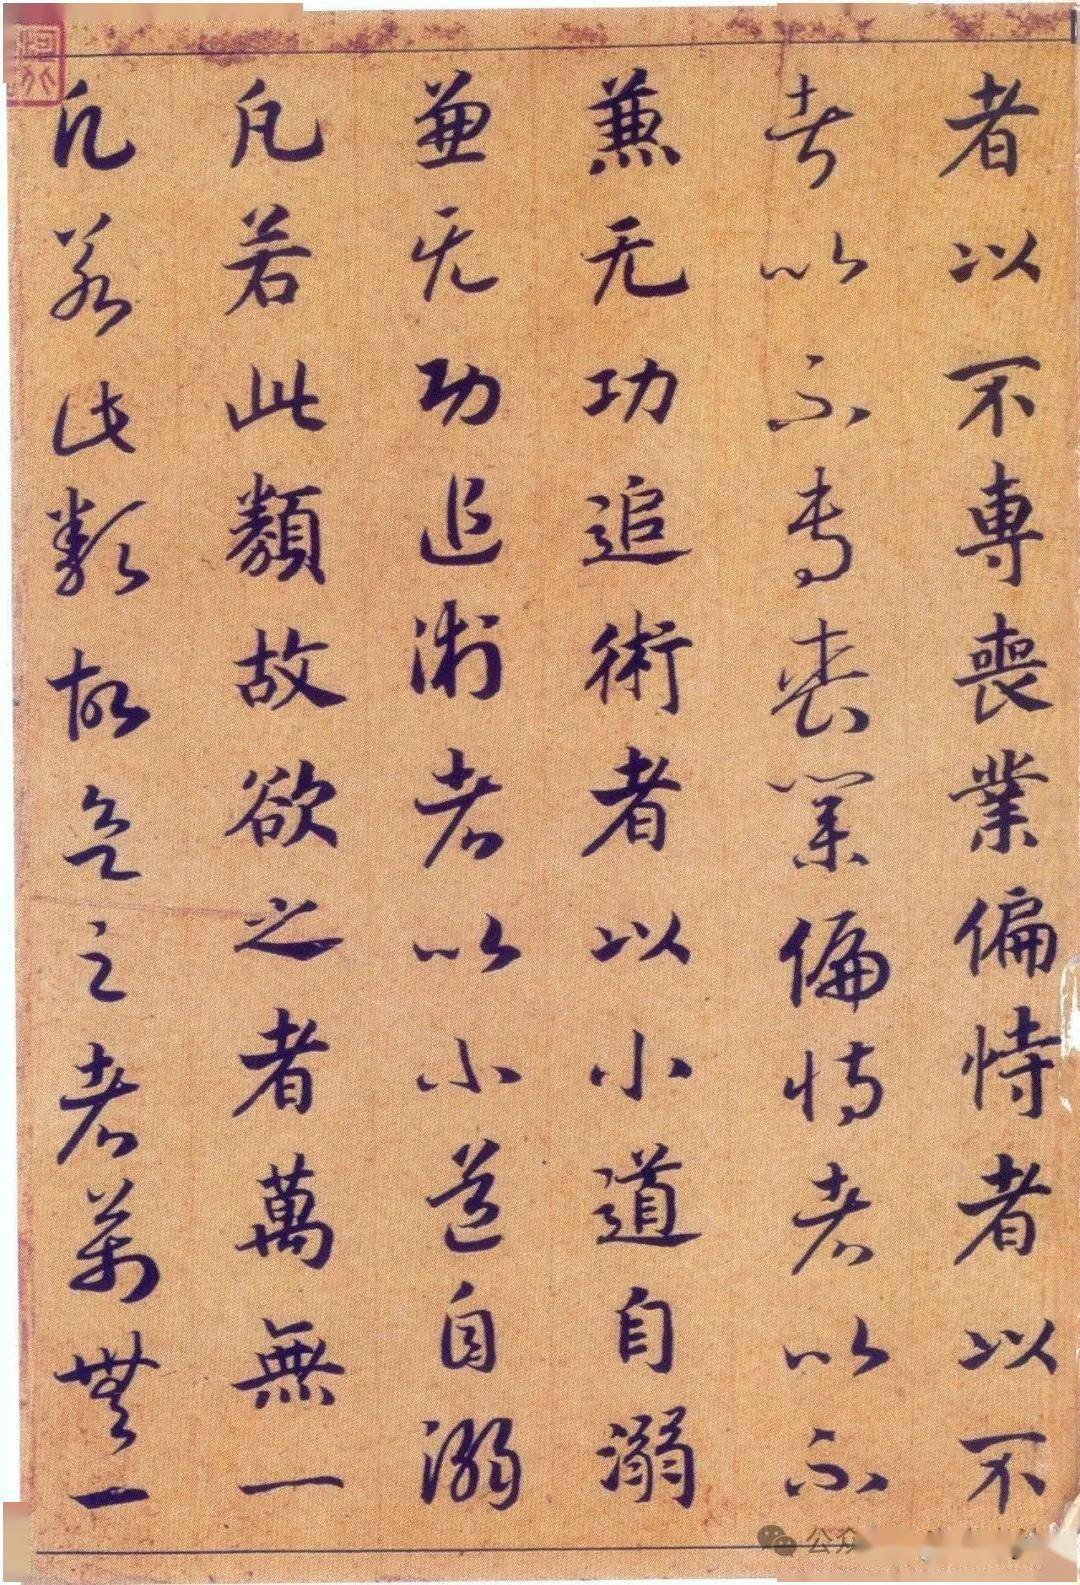 者以不専喪業偏恃者以不
者以不専喪業偏恃者以不
兼无功追術者以小道自溺
兼无功追術者以小道自溺
凡若此類故欲之者萬無一
凡若此類故欲之者萬無一
公众